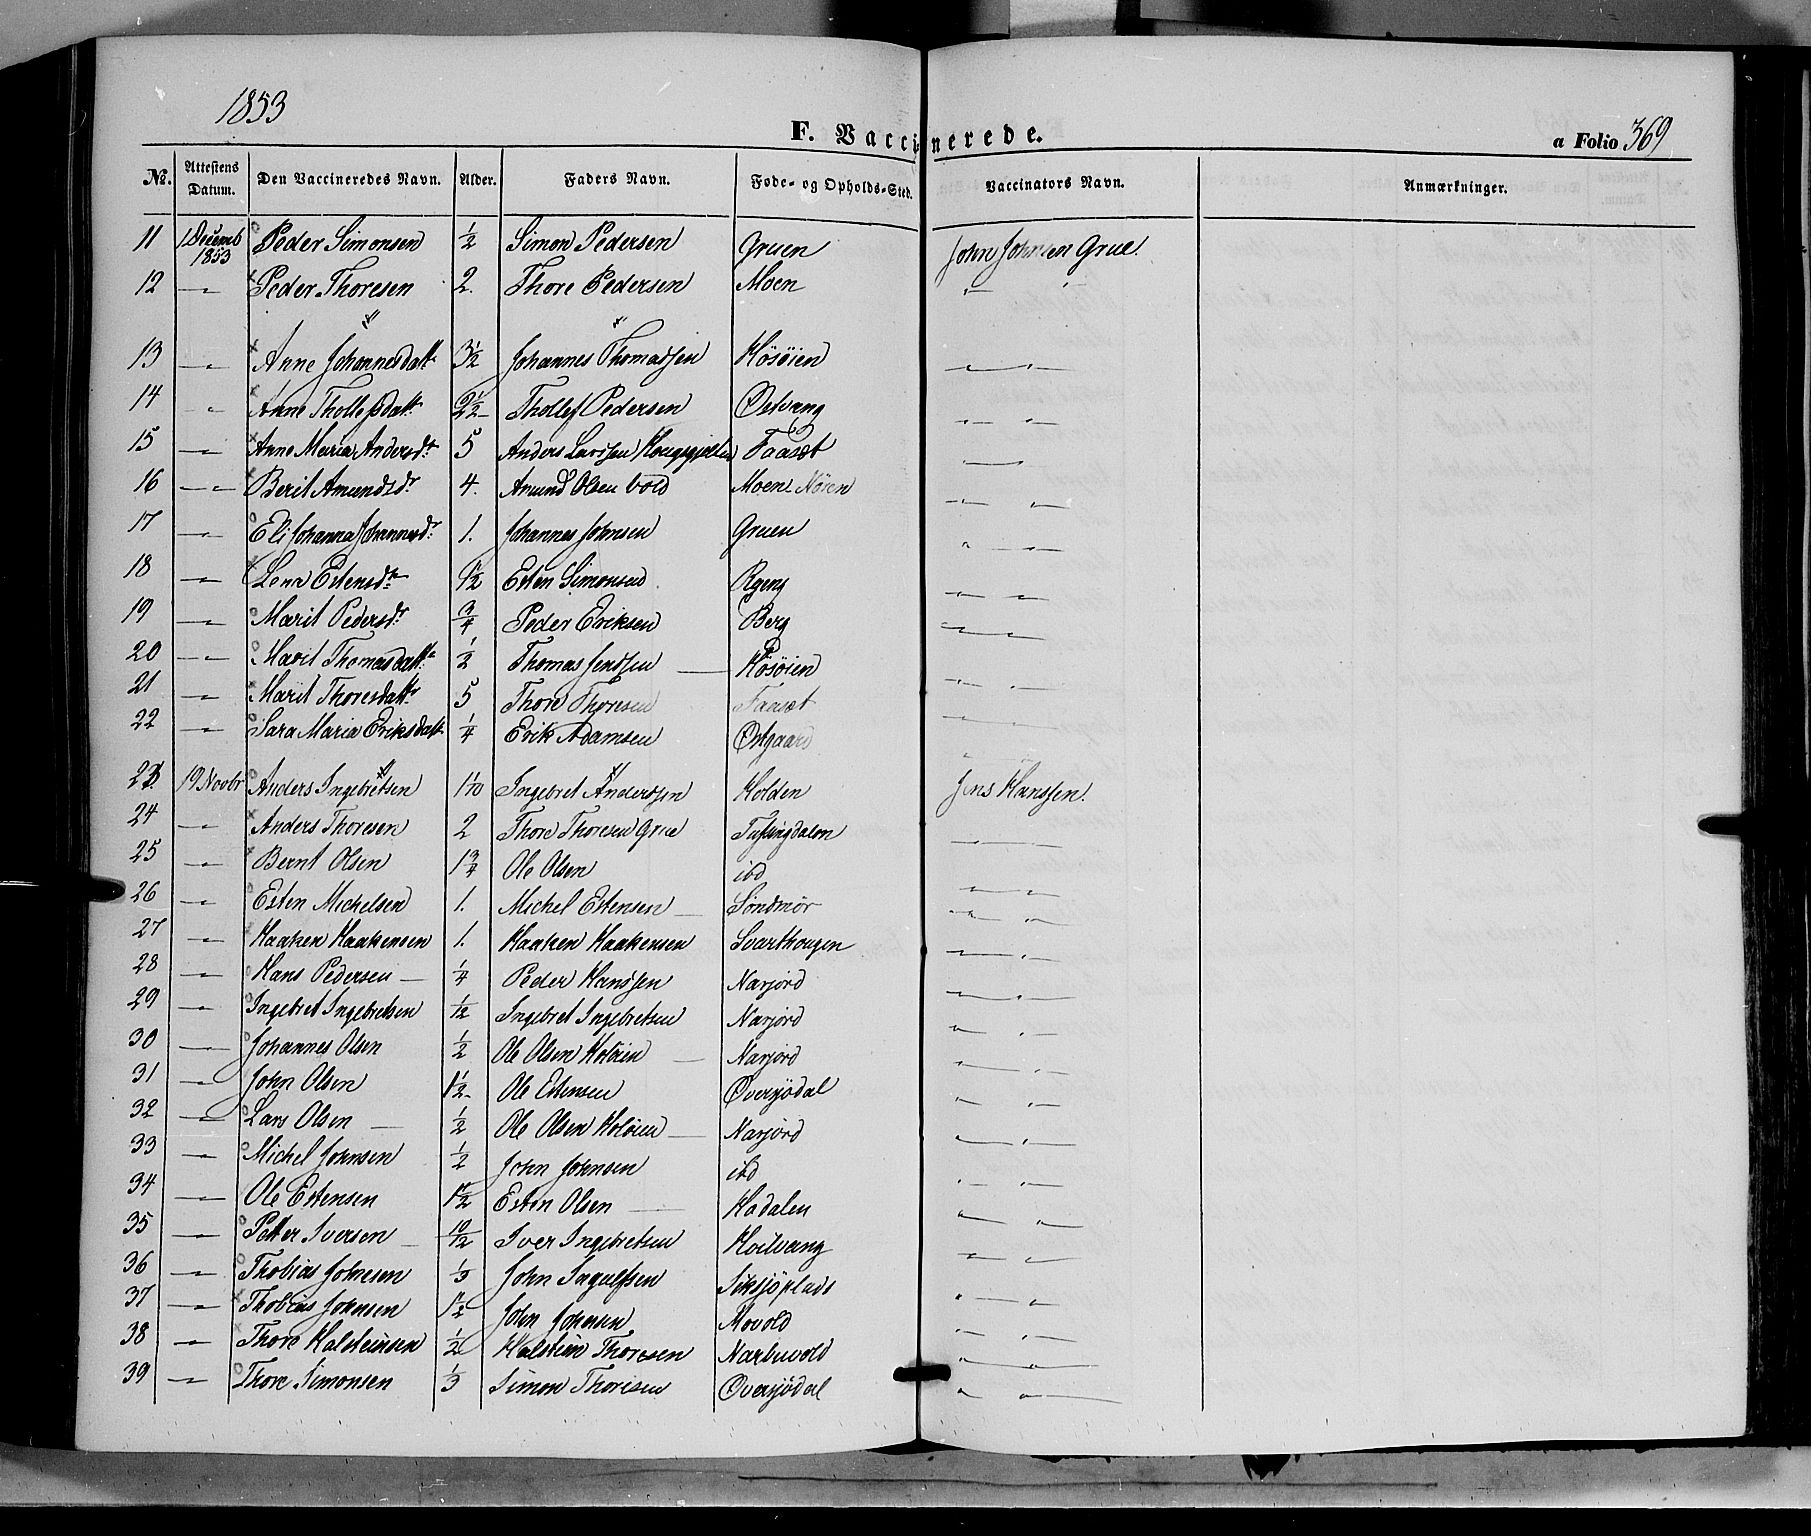 1853
F. Vaccinerede.
a Folio 369
No. Attestens Datum. Den Vaccineredes Navn. Alder. Faders Navn. Føde- og Opholds-Sted. Vaccinators Navn. Anmærkninger.
11 1 Decemb 1853 Peder Simonsen 1/2 Simon Pedersen Gruen John Johnsen Grue.
12 — Peder Thoresen 2. Thore Pedersen Moen — "
13 — Anne Johannesdatt 3 1/2 Johannes Thomassen Kösöien — " —
14 " Anne Thollefsdatt 2 1/2 Thollef Pedersen Østvang — —
15 — Anne Maria Andersdr 5 Anders Larssen Faaset — " —
16 — Berit Amundsdr 4. Amund Olsen Vold Moen Nöien — —
17 — Eli Johanna Johannesdr 1. Johannes Johnsen Gruen — —
18 — Estensdtr 1 1/2 Esten Simonsen Rgeng — —
19 — Marit Pedersdr 3/4 Peder Eriksen Berg — —
20 — Marit Thomasdatt 1/2 Thomas Jenssen — Kösöien
21 — Marit Thoresdatt 5 Thore Thoresen Faaset — —
22 — Sara Maria Eriksdatt 1/4 Erik Adamsen Østgaard — —
23 19 Novbr Anders Ingebretsen 1 1/10 Ingebret Anderssen Holden Jens Hanssen.
24 — Anders Thoresen 2 Thore Thoresen Grue Tufsingdalen — —
25 — Bernt Olsen 1 3/4 Ole Olsen ibd
26 — Esten Michelsen 1. Michel Estensen — Söndmör — —
27 — Haaken Haakensen 1. Haaken Haakensen Svarthougen — —
28 — Hans Pedersen — 1/4 Peder Hanssen Narjord — —
29 — Ingebret Ingebretsen 1/12 Ingebret Ingebretsen Narjord — —
30 — Johannes Olsen 1/2 Ole Olsen Holöien — Narjord — —
31 — John Olsen 1 1/2 Ole Estensen Øversjödal — —
32 — Lars Olsen — 1/2 Ole Olsen Holöien — Narjord — —
33 — Michel Johnsen 1/2 John Johnsen ibd — —
34 — Ole Estensen 1 1/2 Esten Olsen — Hadalen — —
35 — Petter Iversen — 10/12 Iver Ingebretsen Hoilvang — —
36 — Thobias Johnsen 1/3 John Ingulfsen Siksjöplads — —
37 — Thobias Johnsen 1 1/2 John Johnsen Movold — —
38 — Thore Halsteinsen 1/2 Halstein Thoresen Narbuvold — —
39 — Thore Simonsen 1/3 Simon Thoresen Øversjödal — —